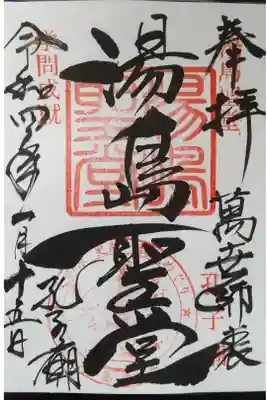 奉拝
萬世師表
孔子
湯島聖堂
湯島聖堂
孔子廟
學問成就
令和四年一月十五日